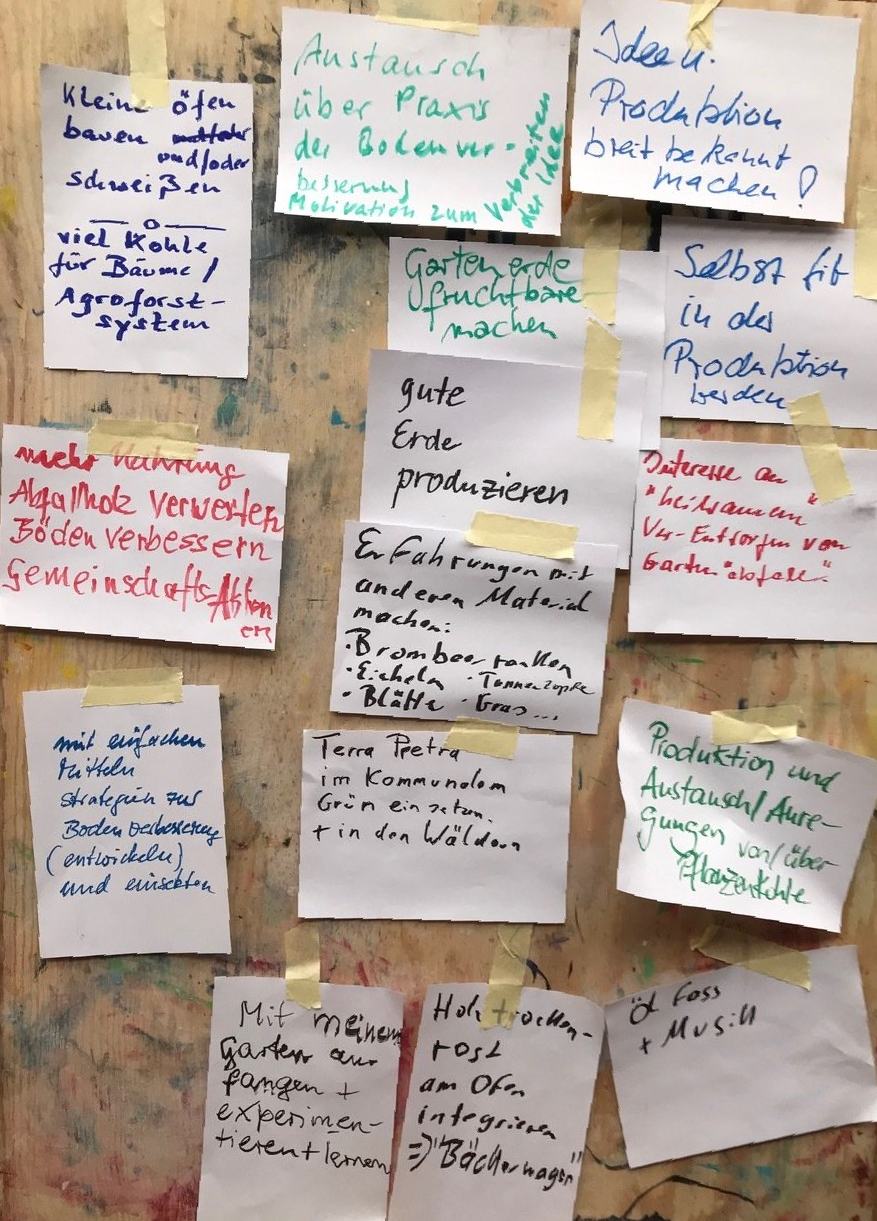 Kleine öfen
bauen
und/oder
schweißen
viel Kohle
für Bäume /
Agroforst-
system
Austausch
über Praxis
der Bodenver-
besserung
Motivation zum
Verbreiten
der Idee
Ideen.
Produktion
breit bekannt
machen!
Gartenerde
fruchtbare
machen
Selbst fit
in der
Produktion
werden
gute
Erde
produzieren
mehr Nahrung
Abfallholz verwerten
Böden verbessern
Gemeinschafts-Aktion
en
Interesse an
"heilsamen"
Ver-Entsorgen von
Garten"abfall".
Erfahrungen mit
anderen Material
machen:
· Brombeerranken
· Eicheln · Tannenzapfen
· Blätter · Gras...
mit einfachen
Mitteln
strategien zur
Bodenverbesserung
(entwickeln)
und einsetzen
Terra Pretra
im Kommunalem
Grün einsetzen.
+ in den Wäldern
Produktion und
Austausch/Anre-
gungen von/über
Pflanzenkohle
Mit meinem
Garten an
fangen +
experimen-
tieren + lernen
Holztrocken-
rost
am Ofen
integrieren
=> "Bäckerwagen"
öl Fass
+ Musik